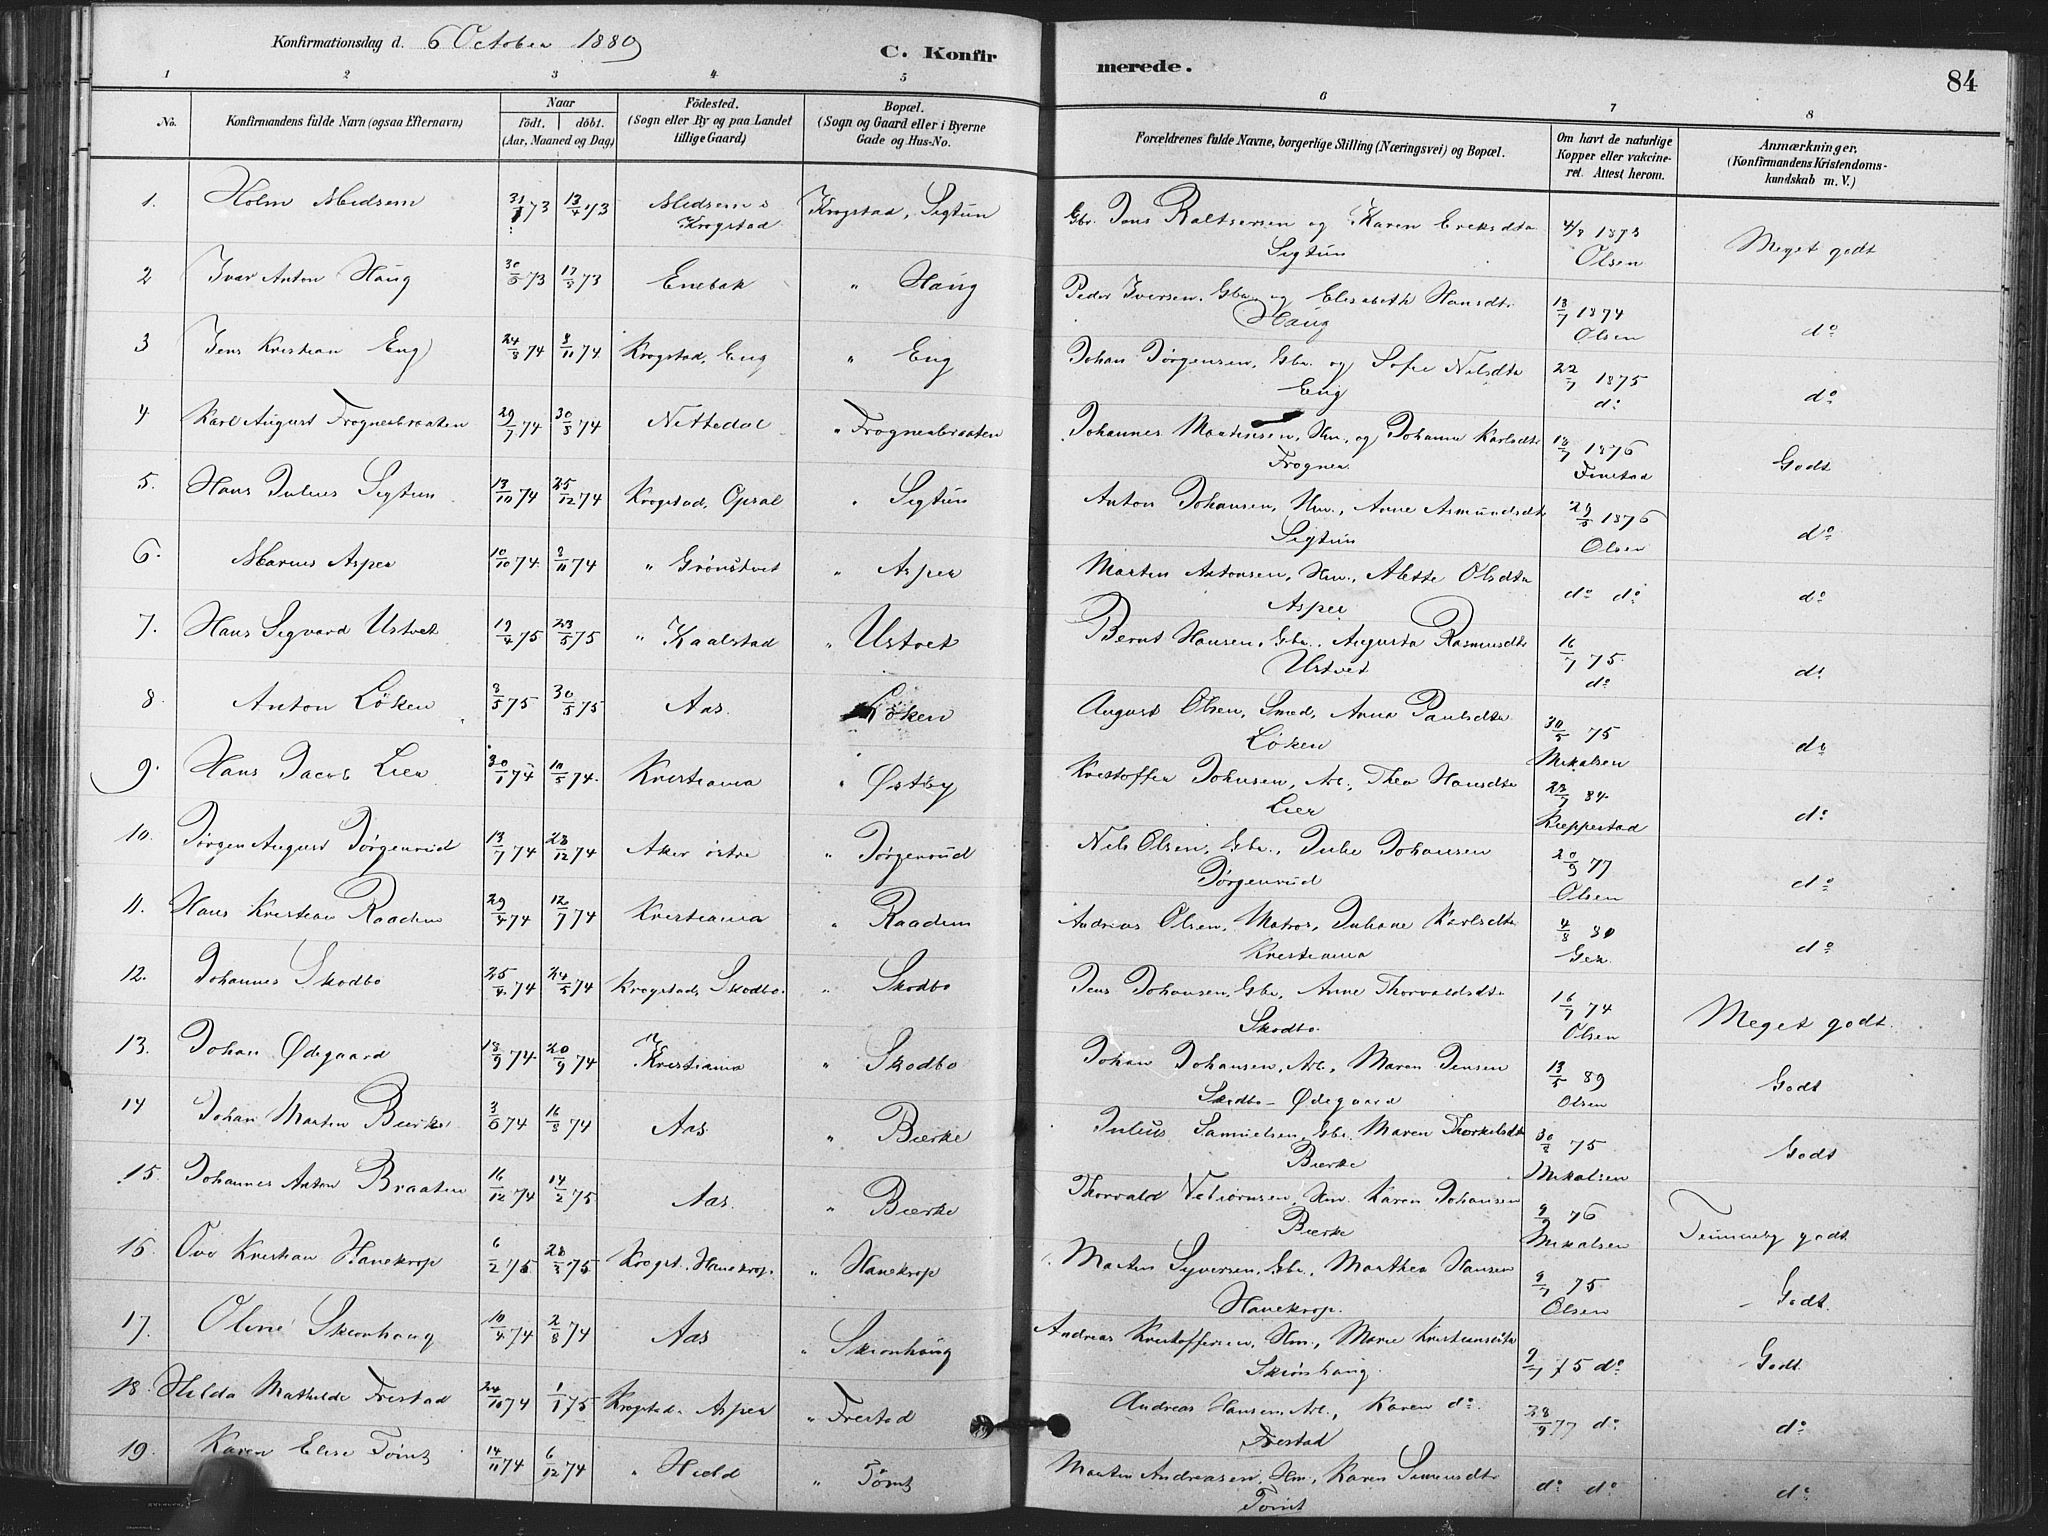 Konfirmationsdag d. 6 October 1889
C. Konfir merede. 84
1 2 3 4 5 6 7 8
No. Konfirmandens fulde Navn (ogsaa Efternavn) Naar födt. döbt. (Aar, Maaned og Dag) Födested. (Sogn eller By og paa Landet tillige Gaard) Bopæl. (Sogn og Gaard eller i Byerne Gade og Hus-No. Forældrenes fulde Navne, borgerlige Stilling (Næringsvei) og Bopæl. Om havt de naturlige Kopper eller vakcineret. Attest herom. Anmærkninger. (Konfirmandens Kristendomskundskab m. V.)
1. Holm Midsem 73 13/4 73 Midsem i Krogstad Krogstad, Sigtun Gbr. Jens og Karen Eriksdtr Sigtun 4/8 1873 Olsen Meget godt
2 Ivar Anton Haug 73 73 Enebak " Haug Peder Iversen, Gbr. og Elisabeth Hansdtr Haug 13/7 1874 Olsen do
3 Jens Kristian Eng 24/8 74 8/11 74 Krogstad, Eng " Eng Johan Jørgensen, Gbr. og Sofie Nilsdtr Eng 22/7 1875 do do
4 Karl August Frognerbraaten 29/7 74 30/8 74 Nittedal " Frognerbraaten Johannes Martinsen, Hm. og Johanne Karlsdtr Frogner 18/7 1876 Finstad Godt
5. Hans Julius Sigtun 13/10 74 25/12 74 Krogstad, Opsal " Sigtun Anton Johansen, Hm., Anne Asmundsdtr Sigtun 29/5 1876 Olsen do
6. Marius Asper 10/10 74 8/11 74 " Grønstvet " Asper Martin Antonsen, Hm., Alette Olsdtr Asper do do do
7. Hans Sigvard Ustvet 19/4 75 23/5 75 " Kaalstad " Ustvet Bernt Hansen, Gbr., Augusta Rasmusdtr Ustvet 16/7 75. do do
8. Anton Løken 8/5 75 30/5 75 Aas. Løken August Olsen, Smed, Anna Paulsdtr Løken 30/5 75 Mikalsen do
9. Hans Jacob Lier 30/1 74 10/5 74 Kristiania " Østby Kristoffer Johnsen, Arb., Thea Hansdtr Lier 84 Kieppestad do
10. Jørgen August Jørgenrud 13/7 74 28/12 74 Aker østre " Jørgenrud Nils Olsen, Gbr., Julie Johansen Jørgenrud 20/9 77 Olsen do
11. Hans Kristian Raadem 29/4 74 12/7 74 Kristiania " Raadem Andreas Olsen, Matros, Juliane Karlsdtr Kristiania 4/8 80 do
12. Johannes Skodbo 25/4 74 24/5 74 Krogstad, Skodbo. " Skodbo Jens Johansen, Gbr., Anne Thorvaldsdtr Skodbo. 16/7 74 Olsen Meget godt.
13. Johan Ødegaard 18/9 74 20/9 74 Kristiania " Skodbo Johan Johansen, Arb., Maren Jensen Skodbo - Ødegaard 13/5 89 Olsen Godt
14 Johan Martin Bierke 3/6 74 16/8 74 Aas " Bierke Julius Samuelsen, Gbr. Maren Thorkelsdtr Bierke 75 Mikalsen Godt
15. Johannes Anton Braaten 16/12 74 14/2 75 Aas. " Bierke Thorvald Hm. Karen Johansen Bierke 9/9 76 Mikalsen Temmelig godt
16. Ove Kristian Hanekrop 6/2 75 28/3 75 Krogst., Hanekrop. " Hanekrop Martin Syversen, Gbr., Marthea Hansen Hanekrop. 9/7 75 Olsen Godt.
17. Oline Skionhaug 10/4 74 2/8 74 Aas " Skionhaug Andreas Kristoffersen, Hm., Marie Kristiansdtr Skiønhaug. 9/7 75 do Godt.
18. Hilda Mathilde Frestad 24/10 74 1/1 75 Krogstad. Asper " Frestad Andreas Hansen, Arb., Karen do Frestad 28/9 77 do do
19. Karen Elise Tømt 14/11 74 6/12 74 " Hield " Tømt Martin Andreasen, Hm., Karen Simensdtr Tomt do do do